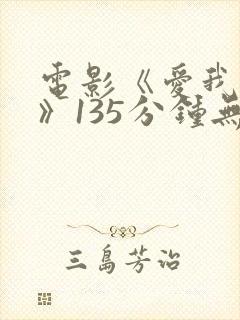 電影《愛我
》135分鍾無
三島芳治